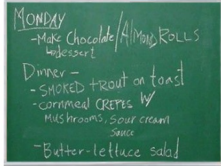 MONDAY
-Make Chocolate/Almond Rolls
4 dessert
Dinner -
- SMOKED trout on toast
- cornmeal CREPES W/
Mushrooms, Sour cream
Sauce
-Butter-lettuce salad